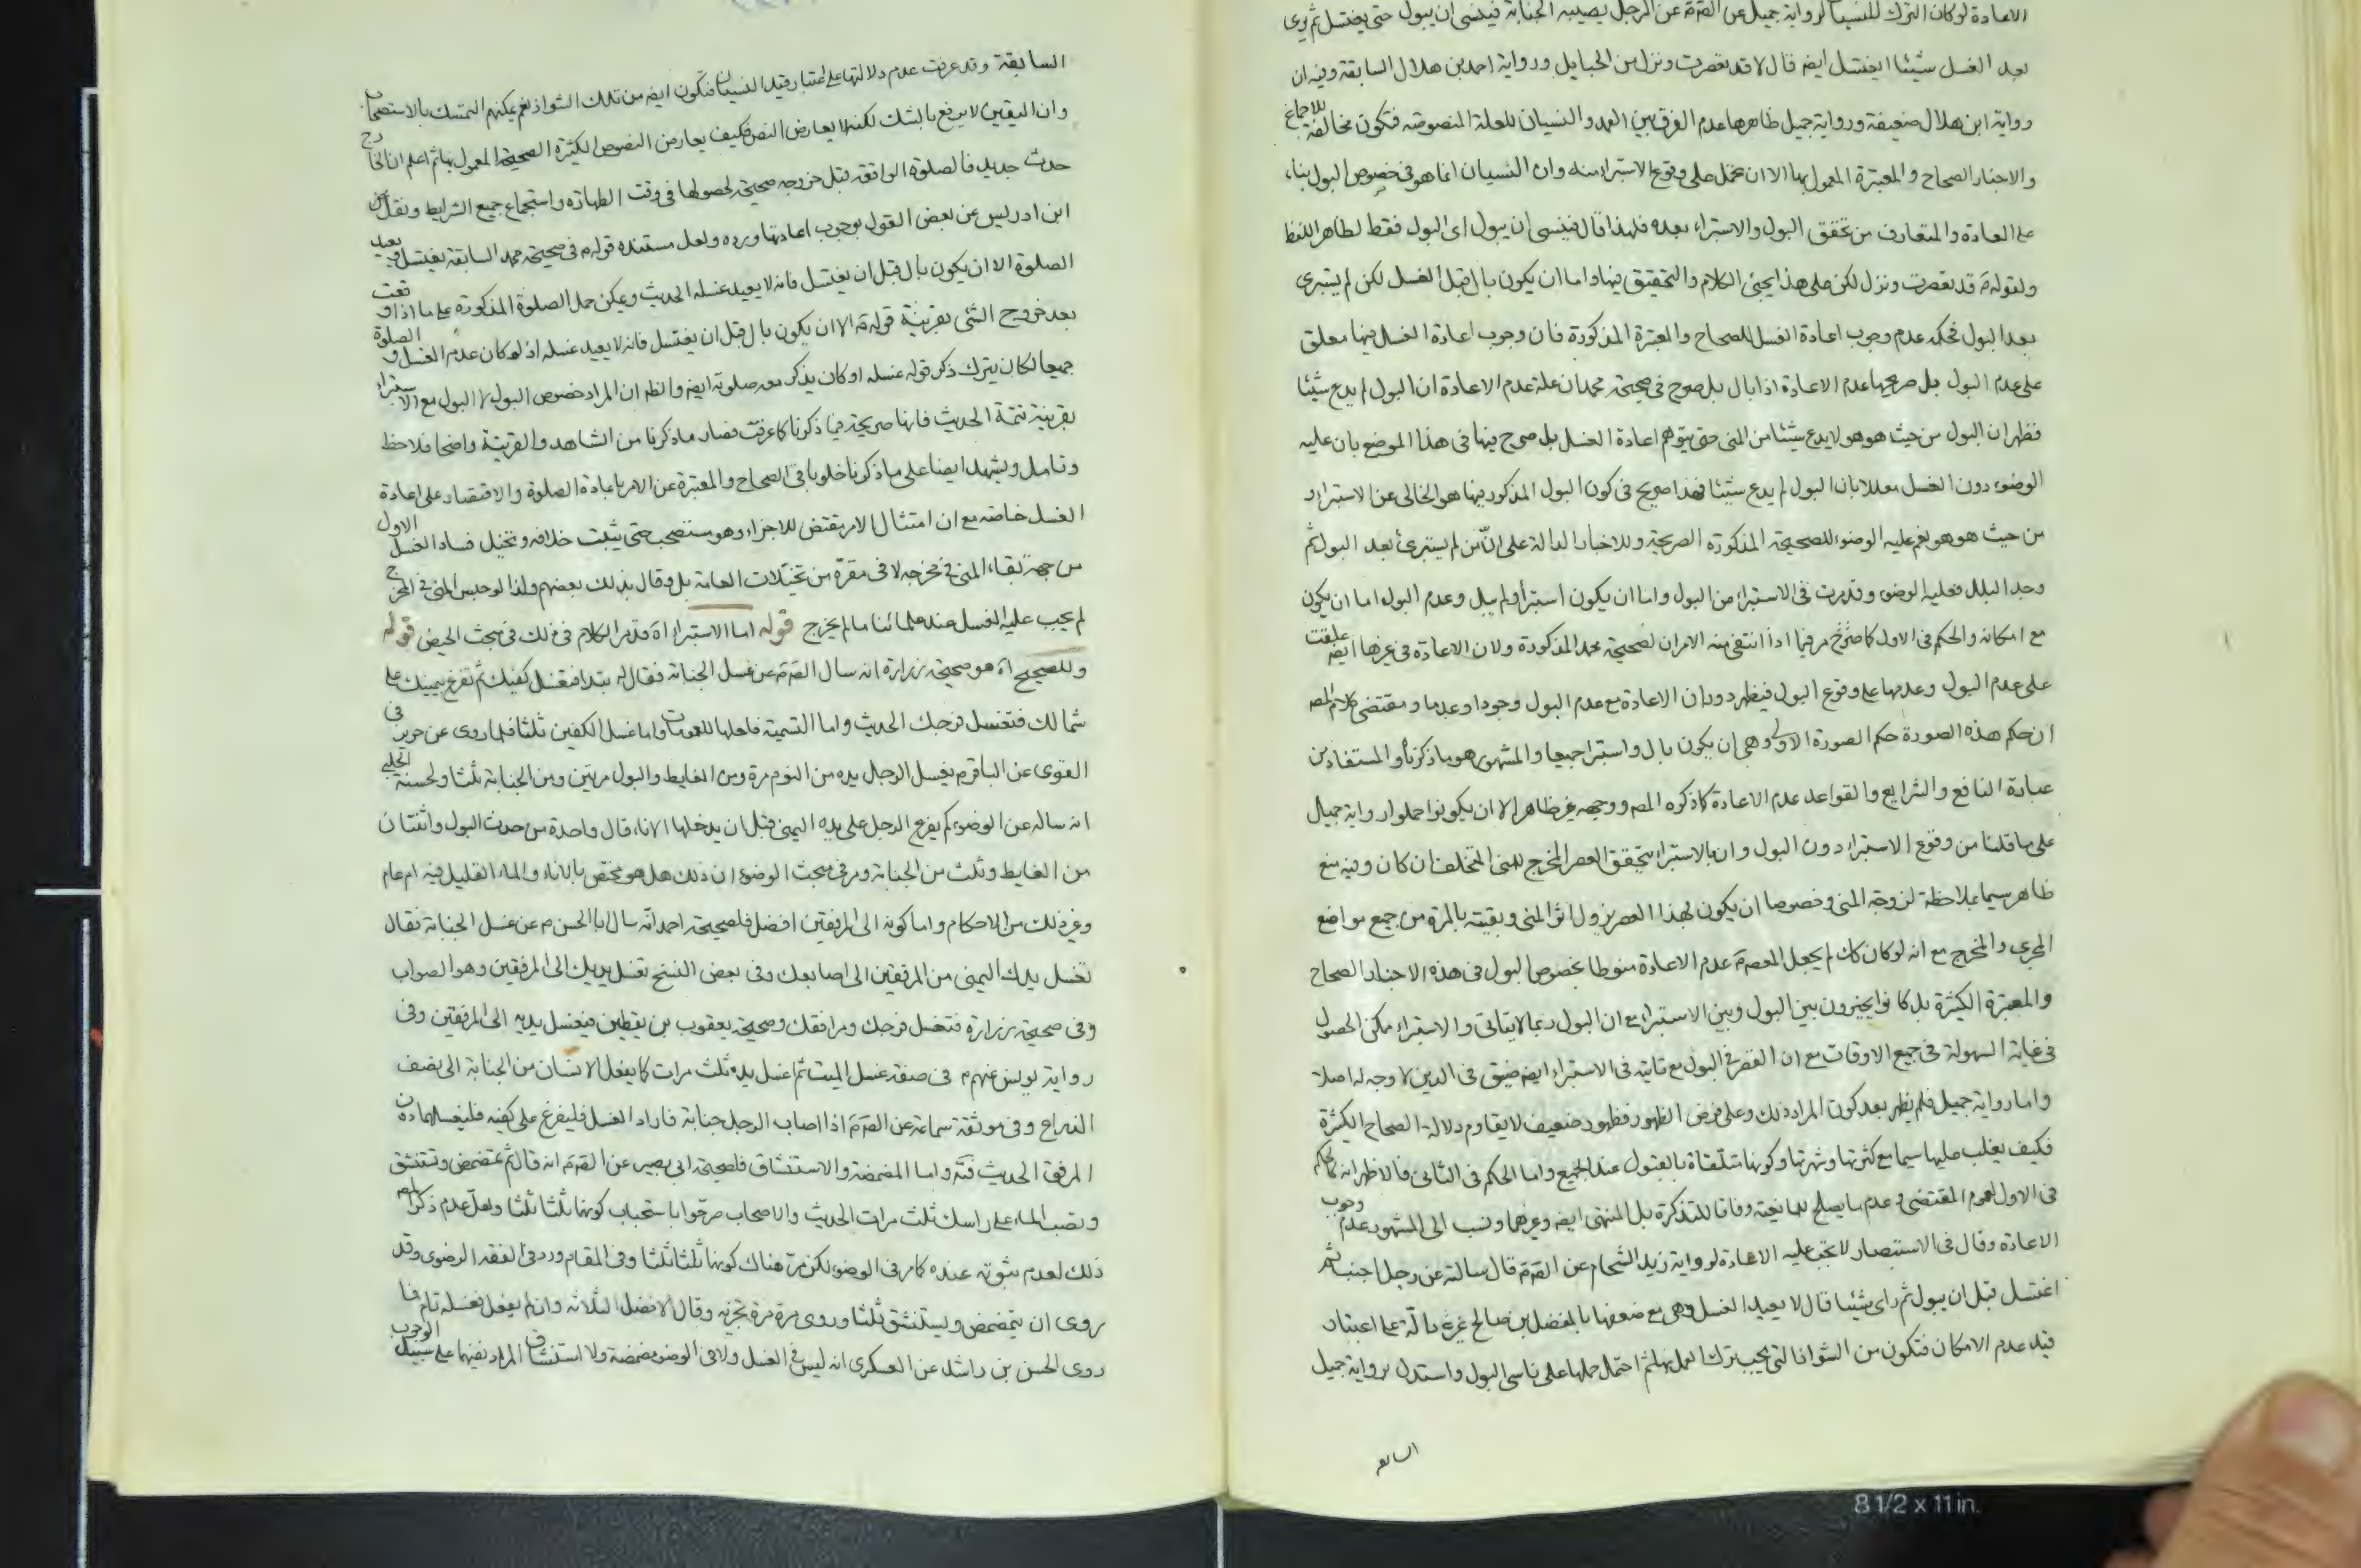 الاعادة لو كان الترك للنسيان لرواية جميل عن الصّ عن الرجل يصيبه الجنابة فينسى ان يبول حتى يغتسل ثم يرى
بعد الغسل شيئا ايغتسل ايض قال لا قد تعصرت ونزل من الحبايل ورواية احمد بن هلال السابقة وفيه ان
رواية ابن هلال ضعيفة ورواية جميل ظاهرها عدم الفرق بين العمد والنسيان للعلة المنصوصة فتكون مخالفة للاجماع
والاخبار الصحاح والمعتبرة المعمول بها الا ان تحمل على وقوع الاستبراء منه وان النسيان انما هو في خصوص البول بناء
على العادة والمتعارف من تحقق البول والاستبراء بعده فلهذا قال فينسى ان يبول اى البول فقط لظاهر اللفظ
ولقوله ع قد تعصرت ونزل لكن على هذا يجئ الكلام والتحقيق فيها واما ان يكون بال قبل الغسل لكن لم يستبرئ
بعد البول فحكمه عدم وجوب اعادة الغسل للصحاح والمعتبرة المذكورة فان وجوب اعادة الغسل فيها معلق
على عدم البول بل صريحها عدم الاعادة اذا بال بل صرح في صحيحة محمد ان علة عدم الاعادة ان البول لم يدع شيئا
فظهر ان البول من حيث هو هو لا يدع شيئا من المنى حتى يتوهم اعادة الغسل بل صرح فيها في هذا الموضع بان عليه
الوضوء دون الغسل معللا بان البول لم يدع شيئا فهذا صريح في كون البول المذكور فيها هو الخالى عن الاستبراء و
من حيث هو هو نعم عليه الوضوء للصحيحة المذكورة الصريحة وللاخبار الدالة على ان من لم يستبرئ بعد البول ثم
وجد البلل فعليه الوضوء وقد مرت في الاستبراء من البول واما ان يكون استبرأ ولم يبل وعدم البول اما ان يكون
مع امكانه والحكم في الاول كما صرح مر فيما اذا انتفى منه الامران لصحيحة محمد المذكورة ولان الاعادة في غيرها ايض علقت
على عدم البول وعدمها على وقوع البول فيظهر دوران الاعادة مع عدم البول وجودا وعدما ومقتضى كلام المص
ان حكم هذه الصورة حكم الصورة الاولى وهي ان يكون بال واستبرا جميعا والمشهور هو ما ذكرنا والمستفاد من
عبارة النافع والشرايع والقواعد عدم الاعادة كما ذكره المص ووجهه غير ظاهر الا ان يكونوا حملوا رواية جميل
على ما قلنا من وقوع الاستبراء دون البول وان بالاستبراء يتحقق العصر المخرج للمنى المتخلف ان كان وفيه منع
ظاهر سيما بملاحظة لزوجة المنى وخصوصا ان يكون بهذا العصر يزول اثر المنى وبقيته بالمرة من جميع مواضع
المجرى والمخرج مع انه لو كان كك لم يجعل المعصوم ع عدم الاعادة منوطا بخصوص البول في هذه الاخبار الصحاح
والمعتبرة الكثيرة بل كانوا يخيرون بين البول وبين الاستبراء مع ان البول ربما لا يتاتى والاستبراء ممكن الحصول
في غاية السهولة في جميع الاوقات مع ان القصر في البول مع تاتيه في الاستبراء ايض ضيق في الدين لا وجه له اصلا
واما رواية جميل فلم يظهر بعد كون المراد ذلك وعلى فرض الظهور فظهور ضعيف لا يقاوم دلالة الصحاح الكثيرة
فكيف يغلب عليها سيما مع كثرتها وشهرتها وكونها متلقاة بالقبول عند الجميع واما الحكم في الثانى فالاظهر انه كالحكم
في الاول لعموم المقتضى وعدم ما يصلح للمانعية وفاقا للتذكرة بل المنتهى ايض وغيرهما ونسب الى المشهور عدم وجوب
الاعادة وقال في الاستبصار لا تجب عليه الاعادة لرواية زيد الشحام عن الصّ قال سالته عن رجل اجنب ثم
اغتسل قبل ان يبول ثم راى شيئا قال لا يعيد الغسل وهي مع ضعفها بالمفضل بن صالح غير دالة على اعتبار
قيد عدم الامكان فتكون من الشواذ التى يجب ترك العمل بها ثم احتمل حملها على ناسى البول واستدل برواية جميل
السابقة
السابقة وقد عرفت عدم دلالتها على اعتبار قيد النسيان فتكون ايض من تلك الشواذ نعم يمكنهم التمسك بالاستصحاب
وان اليقين لا يرفع بالشك لكنه لا يعارض النص فكيف يعارض النصوص الكثيرة الصحيحة المعمول بها ثم اعلم ان الخارج
حدث جديد فالصلوة الواقعة قبل خروجه صحيحة لحصولها في وقت الطهارة واستجماع جميع الشرايط ونقل عن
ابن ادريس عن بعض القول بوجوب اعادتها ورده ولعل مستنده قوله ع في صحيحة محمد السابقة يغتسل ويعيد
الصلوة الا ان يكون بال قبل ان يغتسل فانه لا يعيد غسله الحديث ويمكن حمل الصلوة المذكورة على ما اذا وقعت
بعد خروج الشئ بقرينة قوله ع الا ان يكون بال قبل ان يغتسل فانه لا يعيد غسله اذ لو كان عدم الغسل والصلوة
جميعا لكان يترك ذكر قوله غسله او كان يذكر معه صلوته ايض والظ ان المراد خصوص البول لا البول مع الاستبراء
بقرينة تتمة الحديث فانها صريحة فيما ذكرنا كما عرفت فصار ما ذكرنا من الشاهد والقرينة واضحا فلاحظ
وتامل ويشهد ايضا على ما ذكرنا خلو باقى الصحاح والمعتبرة عن الامر باعادة الصلوة والاقتصار على اعادة
الغسل خاصة مع ان امتثال الامر يقتضى للاجزاء وهو مستصحب حتى يثبت خلافه وتخيل فساد الغسل الاول
من جهة بقاء المنى في مخرجه لا في مقره من تخيلات العامة بل وقال بذلك بعضهم ولذا لو حبس المنى في المخرج
لم يجب عليه الغسل عند علمائنا ما لم يخرج قوله اما الاستبراء اه قد مر الكلام في ذلك في مبحث الحيض قوله
وللصحيح اه هو صحيحة زرارة انه سال الصّ عن غسل الجنابة فقال له تبدا فتغسل كفيك ثم تفرغ بيمينك على
شمالك فتغسل فرجك الحديث واما التسمية فلعلها للعمومات واما غسل الكفين ثلثا فلما روى عن حريز في
القوى عن الباقر ع يغسل الرجل يده من النوم مرة ومن الغايط والبول مرتين ومن الجنابة ثلثا ولحسنة الحلبى
انه ساله عن الوضوء كم يفرغ الرجل على يده اليمنى قبل ان يدخلها الاناء قال واحدة من حدث البول واثنتان
من الغايط وثلث من الجنابة ومر في مبحث الوضوء ان ذلك هل هو مختص بالاناء والماء القليل فيه ام عام
وغير ذلك من الاحكام واما كونه الى المرفقين افضل فلصحيحة احمد انه سال ابا الحسن ع عن غسل الجنابة فقال
تغسل يدك اليمنى من المرفقين الى اصابعك وفى بعض النسخ تغسل يديك الى المرفقين وهو الصواب
وفى صحيحة زرارة فتغسل فرجك ومرافقك وصحيحة يعقوب بن يقطين فيغسل يديه الى المرفقين وفى
رواية يونس عنهم ع في صفة غسل الميت ثم اغسل يده ثلث مرات كما يغسل الانسان من الجنابة الى نصف
الذراع وفى موثقة سماعة عن الصّ اذا اصاب الرجل جنابة فاراد الغسل فليفرغ على كفيه فليغسلهما دون
المرفق الحديث واما المضمضة والاستنشاق فلصحيحة ابى بصير عن الصّ انه قال ثم تمضمض وتستنشق
وتصب الماء على راسك ثلث مرات الحديث والاصحاب صرحوا باستحباب كونهما ثلثا ثلثا ولعل عدم ذكر المص
ذلك لعدم ثبوته عنده كما مر في الوضوء لكن مر هناك كونهما ثلثا ثلثا وفى المقام ورد فى الفقه الرضوى وقد
روى ان يتمضمض ويستنشق ثلثا وروى مرة مرة تجزيه وقال الافضل الثلاثة وان لم يفعل فغسله تام فما
روى الحسن بن راشد عن العسكرى انه ليس في الغسل ولا في الوضوء مضمضة ولا استنشاق المراد نفيهما على سبيل الوجوب
8 1/2 x 11 in.